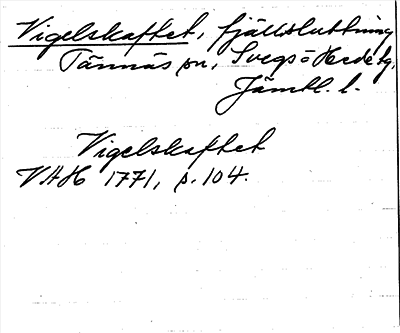 Vigelskaftet, fjällsluttning
Tännäs sn, Svegs o Hede tg,
Jämtl. l.
Vigelskaftet
VAH 1771, p. 104.